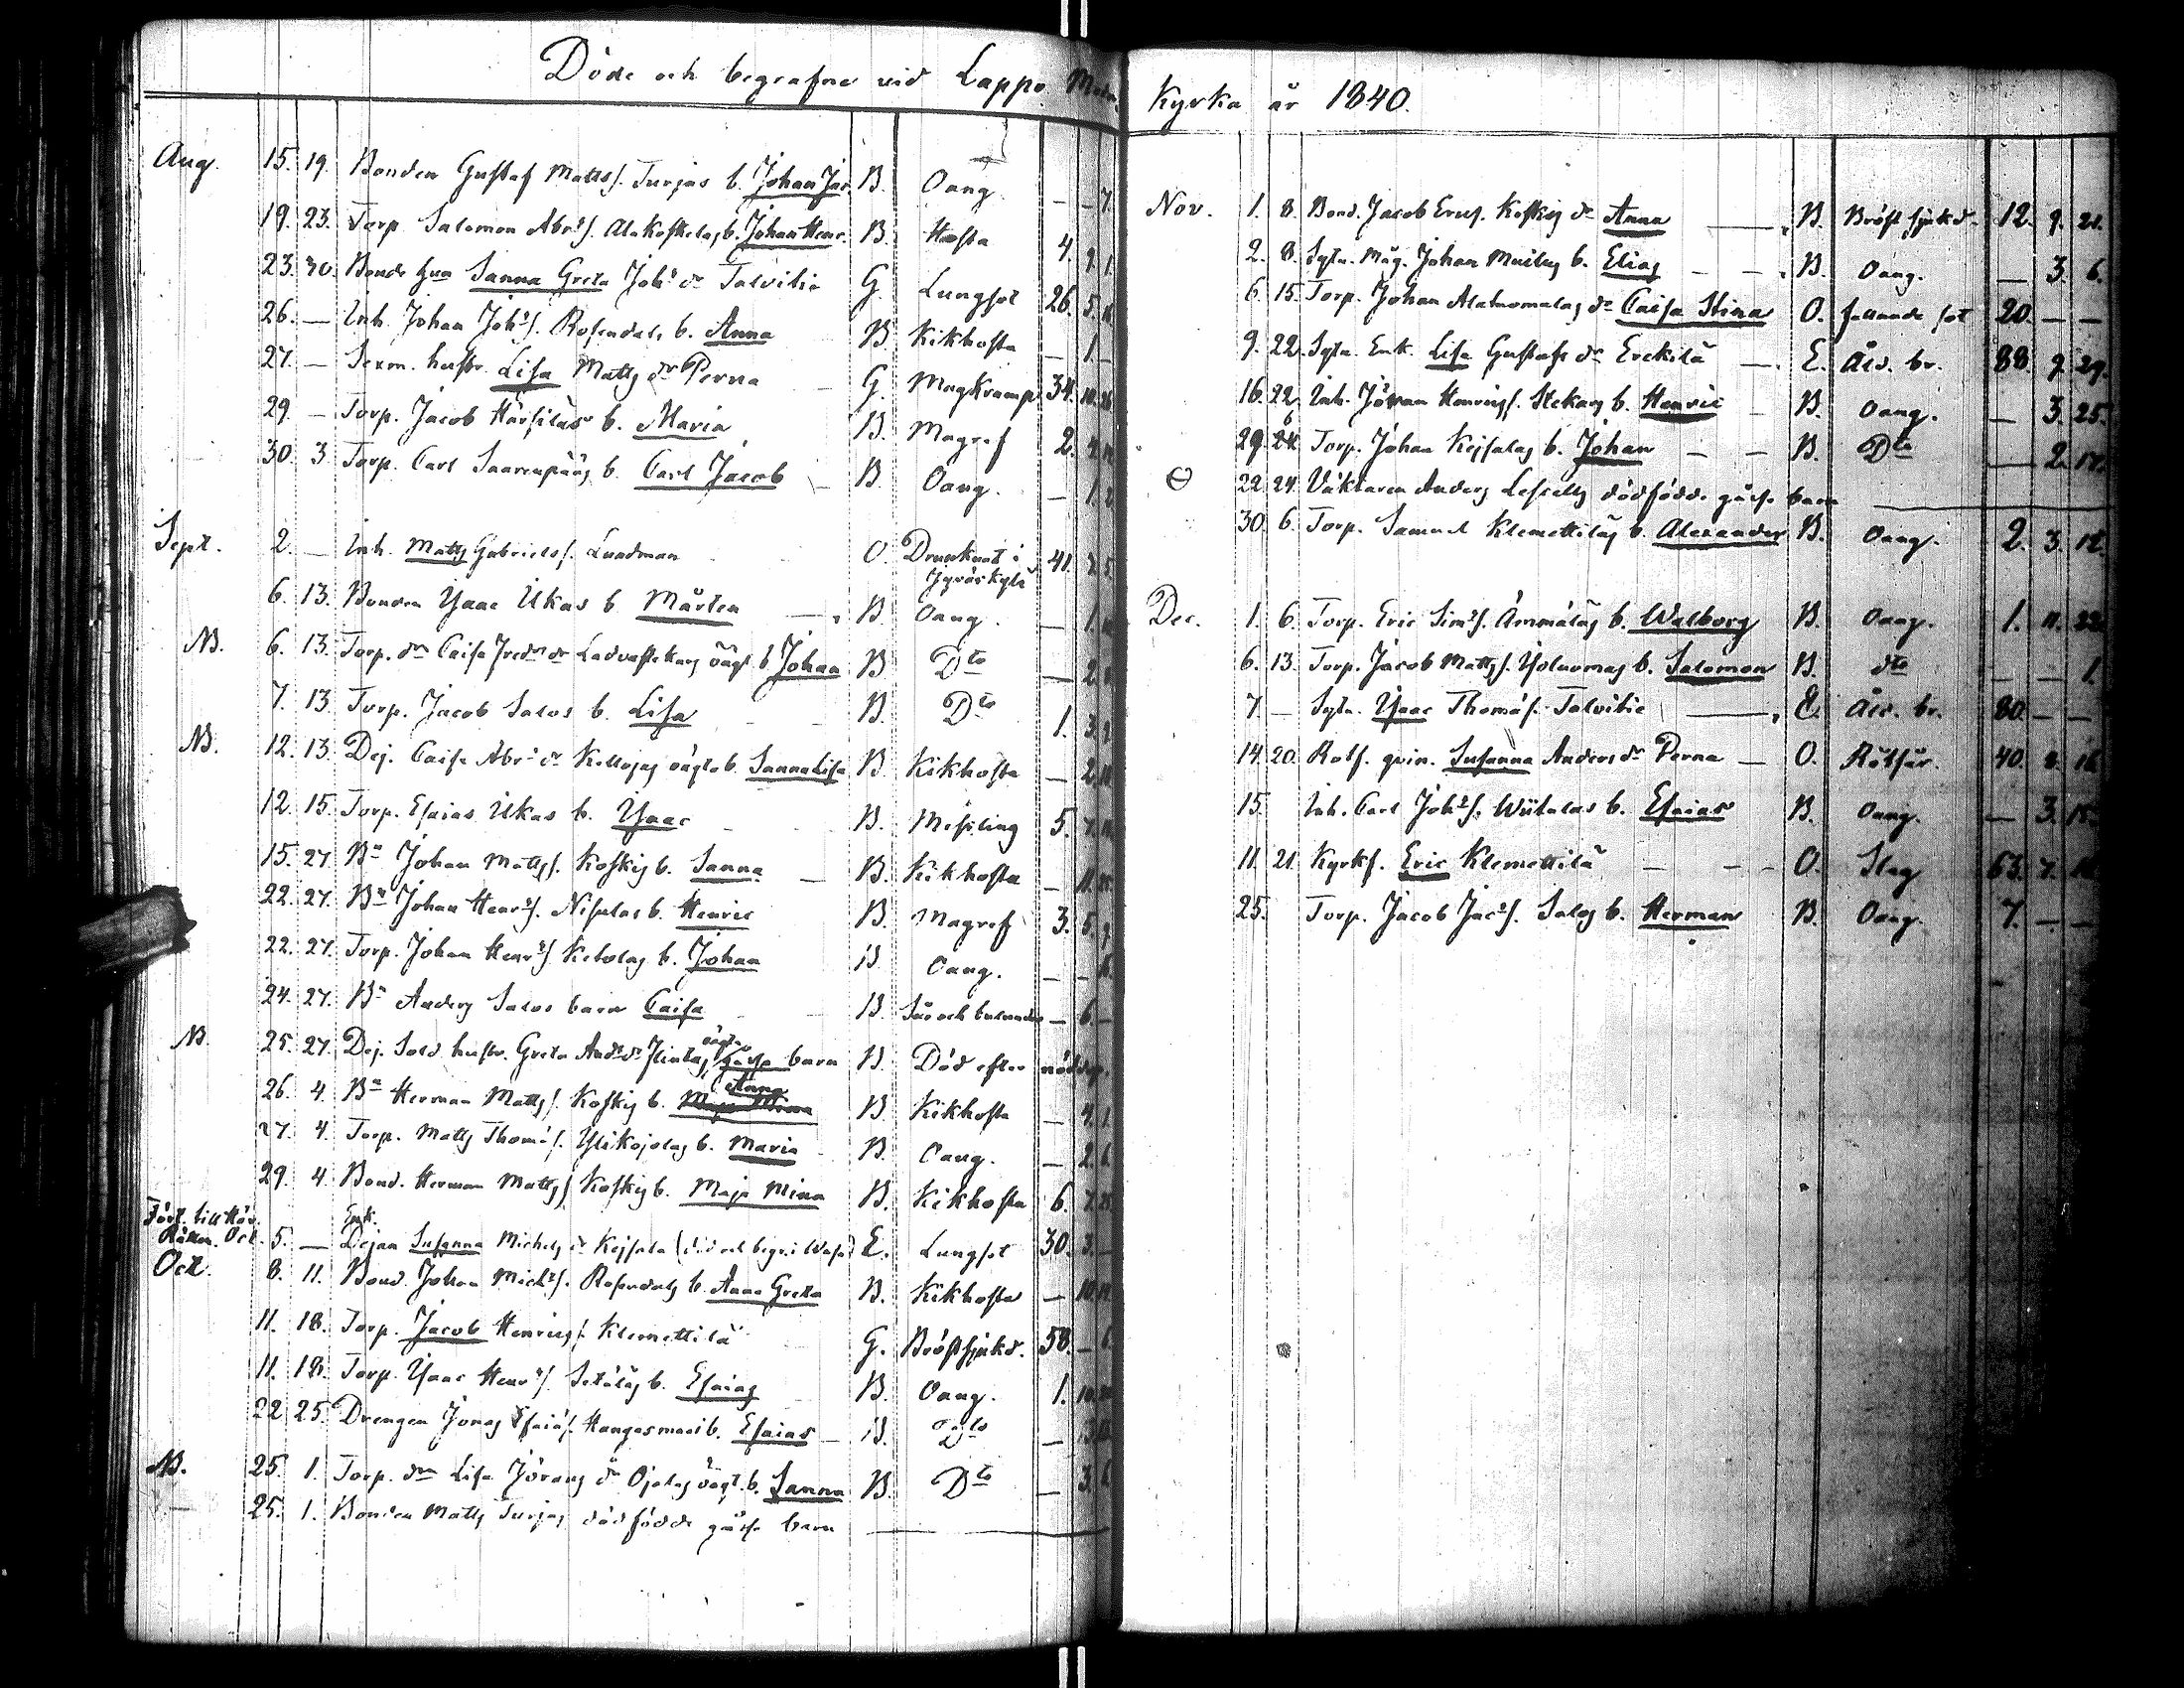 Döde och begrafne vid Lappo Moder
Aug. 15. 19. Bonden Gustaf Mattss. Turjas b. Johan Jac. B. Oang. — — 7.
19. 23. Torp. Salomon Abrs. Alakoskelas b. Johan Henr. B. Hosta 4. 9. 1.
23. 30. Bonde hua Sanna Greta Johs dr Talvitie G. Lungsot 26. 5.
26. — Inh. Johan Johs. Rosendals b. Anna B. Kikhosta — 1. —
27. — Sexm. hustr. Lisa Matts dr Perna — G. Magkramp 34. 10. 26
29. — Torp. Jacob Härsiläs b. Maria B. Magref 2. 4.
30. 3. Torp. Carl Saarenpääs b. Carl Jacob — B. Oang. — 1.
Sept. 2. — Inh. Matts Gabriels. Lundman O. Drunknat i 41. 2. 5.
Jyväskylä
6. 13. Bonden Isaac Ukas b. Mårten — B. Oang. — 1.
NB. 6. 13. Torp. dr Caisa Fredr dr Ladvastekars oägt. b Johan B. Dto — 2.
7. 13. Torp. Jacob Salos b. Lisa — — B. Dto 1. 3.
NB. 12. 13. Dej. Caisa Abr. dr Kellojas oägta b. Sanna Lisa B. Kikhosta — 2.
12. 15. Torp. Esaias Ukas b. Isaac — B. Mäsling 5. 7.
15. 27. Bn Johan Mattss. Koskis b. Sanna — B. Kikhosta — 11.
22. 27. Bn Johan Henrs. Nisulas b. Henric B. Magref 3. 5. 9.
22. 27. Torp. Johan Henrs. Ketolas b. Johan B. Oang. — —
24. 27. Bn Anders Salos barn Caisa — B. Sår och bulnader — 6. —
oägta
NB. 25. 27. Dej. Sold. hustr. Greta Ands dr Flintas gåsse barn B. Död efter nöddop.
Anna
26. 4. Bn Herman Mattss. Koskis b. Maja Mina B. Kikhosta — 4. 1.
27. 4. Torp. Matts Thomæs. Ylikojolas b. Maria — B. Oang. — 2. 6.
29. 4. Bond. Herman Mattss. Koskis b. Maja Mina B. Kikhosta 6. 7.
Enk.
Oct. 5. — Dejan Susanna Michels dr Kejsala (död och begr. i Wasa) E. Lungsot 30. 3. —
Oct. 8. 11. Bond. Johan Michs. Rosendals b. Anna Greta B. Kikhosta — 10.
11. 18. Torp. Jacob Henrics. Klemettilä G. Bröstsjukd. 58. —
11. 18. Torp. Isaac Henrs. Setäläs b. Esaias — B. Oang. 1. 10.
22 25. Drengen Jonas Esaiæs. Kangasmaas b. Esaias — B. Dto —
NB. 25. 1. Torp. dr Lisa Jörans dr Ojalas oägt. b. Sanna B. Dto — 3.
25. 1. Bonden Matts Turjas dödfödde gåsse barn —
Kyrka år 1840.
Nov. 1. 8. Bond. Jacob Erics. Koskis dr Anna — B. Bröstsjukd. 12. 9. 21.
2. 8. Sytn. Måg. Johan Mailas b. Elias — — B. Oang. — 3. 6.
6. 15. Torp. Johan Alaluomalas dr Caisa Stina O. fallande sot 20. — —
9. 22. Sytn. Enk. Lisa Gustafs dr Erckilä — E. Åld. br. 88. 9. 29.
16. 22. Inh. Jöran Henrics. Stekars b. Henric — B. Oang. — 3. 25.
6
29. 24 Torp. Johan Kejsalas b. Johan — — B. Dto — 2. 17.
22 24 Väktaren Anders Lesells dödfödde gåsse barn —
30. 6. Torp. Samuel Klemettiläs b. Alexander B. Oang. 2. 3. 12.
Dec. 1. 6. Torp. Eric Sims. Ämmäläs b. Walborg B. Oang. 1. 11. 22.
6. 13. Torp. Jacob Mattss. Isoluomas b. Salomon B. dto — — 1.
7. — Sytn. Isaac Thomæs. Talvitie — E. Åld. br. 80. — —
14. 20. Rotf. qvin. Susanna Anders dr Perna — O. Rötfår. 40. 8. 16.
15. Inh. Carl Johs. Wiitalas b. Esaias B. Oang. — 3. 15.
11. 21. Kyrkf. Eric Klemettilä — — O. Slag 63. 7.
25. Torp. Jacob Jacs. Salos b. Herman B. Oang. 7. — —